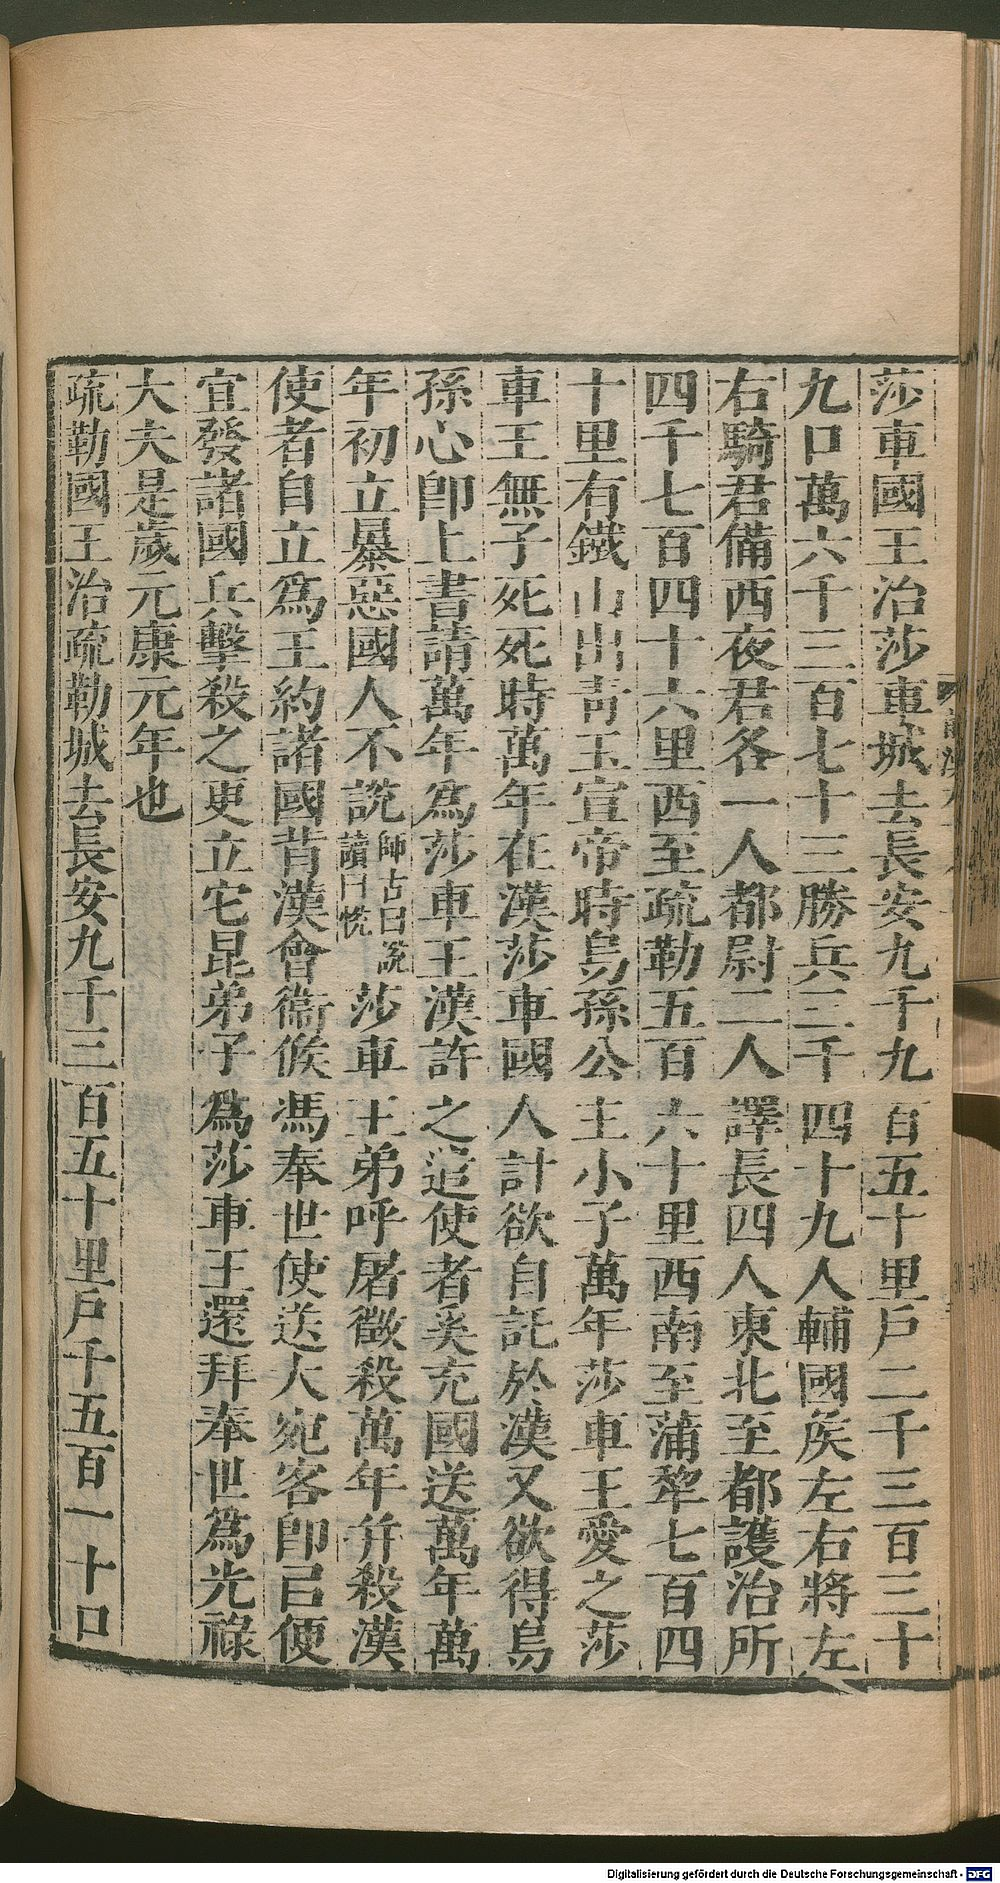 莎車國王治莎車城去長安九千九百五十里戶二千三百三十
九口萬六千三百七十三勝兵三千四十九人輔國侯左右將左
右騎君備西夜君各一人都尉二人譯長四人東北至都護治所
四千七百四十六里西至疏勒五百六十里西南至蒲犂七百四
十里有鐵山出青玉宣帝時烏孫公主小子萬年莎車王愛之莎
車王無子死死時萬年在漢莎車國人計欲自託於漢又欲得烏
孫心卽上書請萬年爲莎車王漢許之遣使者奚充國送萬年萬
年初立暴惡國人不說師古曰說讀曰悅莎車王弟呼屠徵殺萬年幷殺漢
使者自立爲王約諸國背漢會衞候馮奉世使送大宛客卽㠯便
宜發諸國兵擊殺之更立它昆弟子爲莎車王還拜奉世爲光祿
大夫是歲元康元年也
疏勒國王治疏勒城去長安九千三百五十里戶千五百一十口
Digitalisierung gefördert durch die Deutsche Forschungsgemeinschaft - DFG